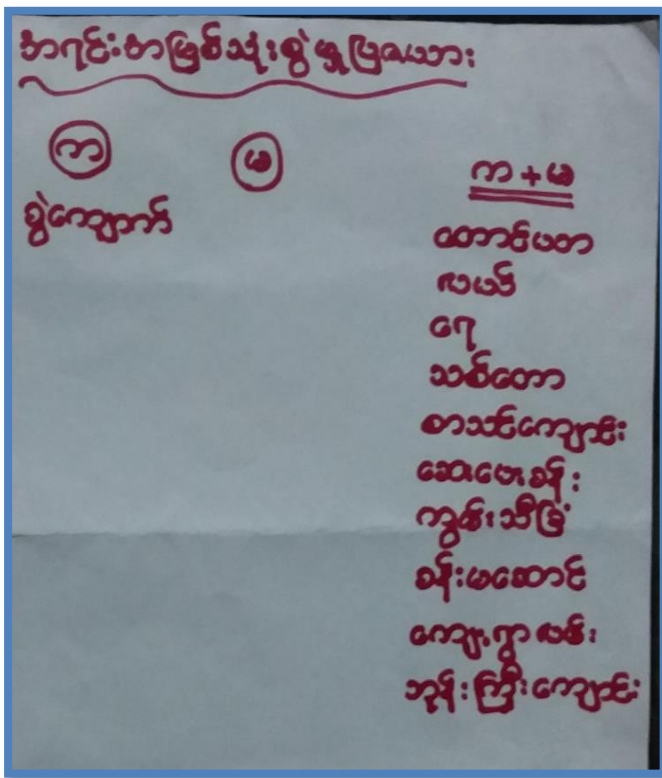 အရင်းအမြစ်သုံးစွဲမှုပြဇယား
က မ က + မ
စွဲကျောက်
တောင်ယာ
လယ်
ရေ
သစ်တော
စာသင်ကျောင်း
ဆေးပေးခန်း
ကွမ်းသီးခြံ
ခန်းမဆောင်
ကျေးရွာလမ်း
ဘုန်းကြီးကျောင်း